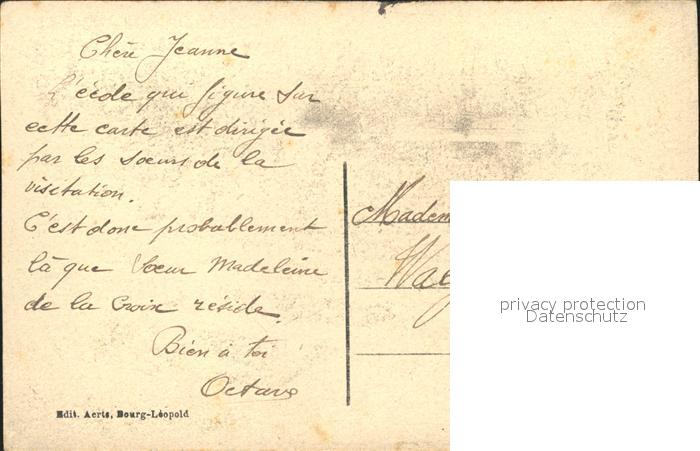 Chère Jeanne
L'école qui figure sur
cette carte est dirigée
par les soeurs de la
visitation.
C'est donc probablement
là que Soeur Madeleine
de la Croix réside.
Bien à toi
Octave
Edit. Aerts, Bourg-Léopold
Madem
privacy protection
Datenschutz